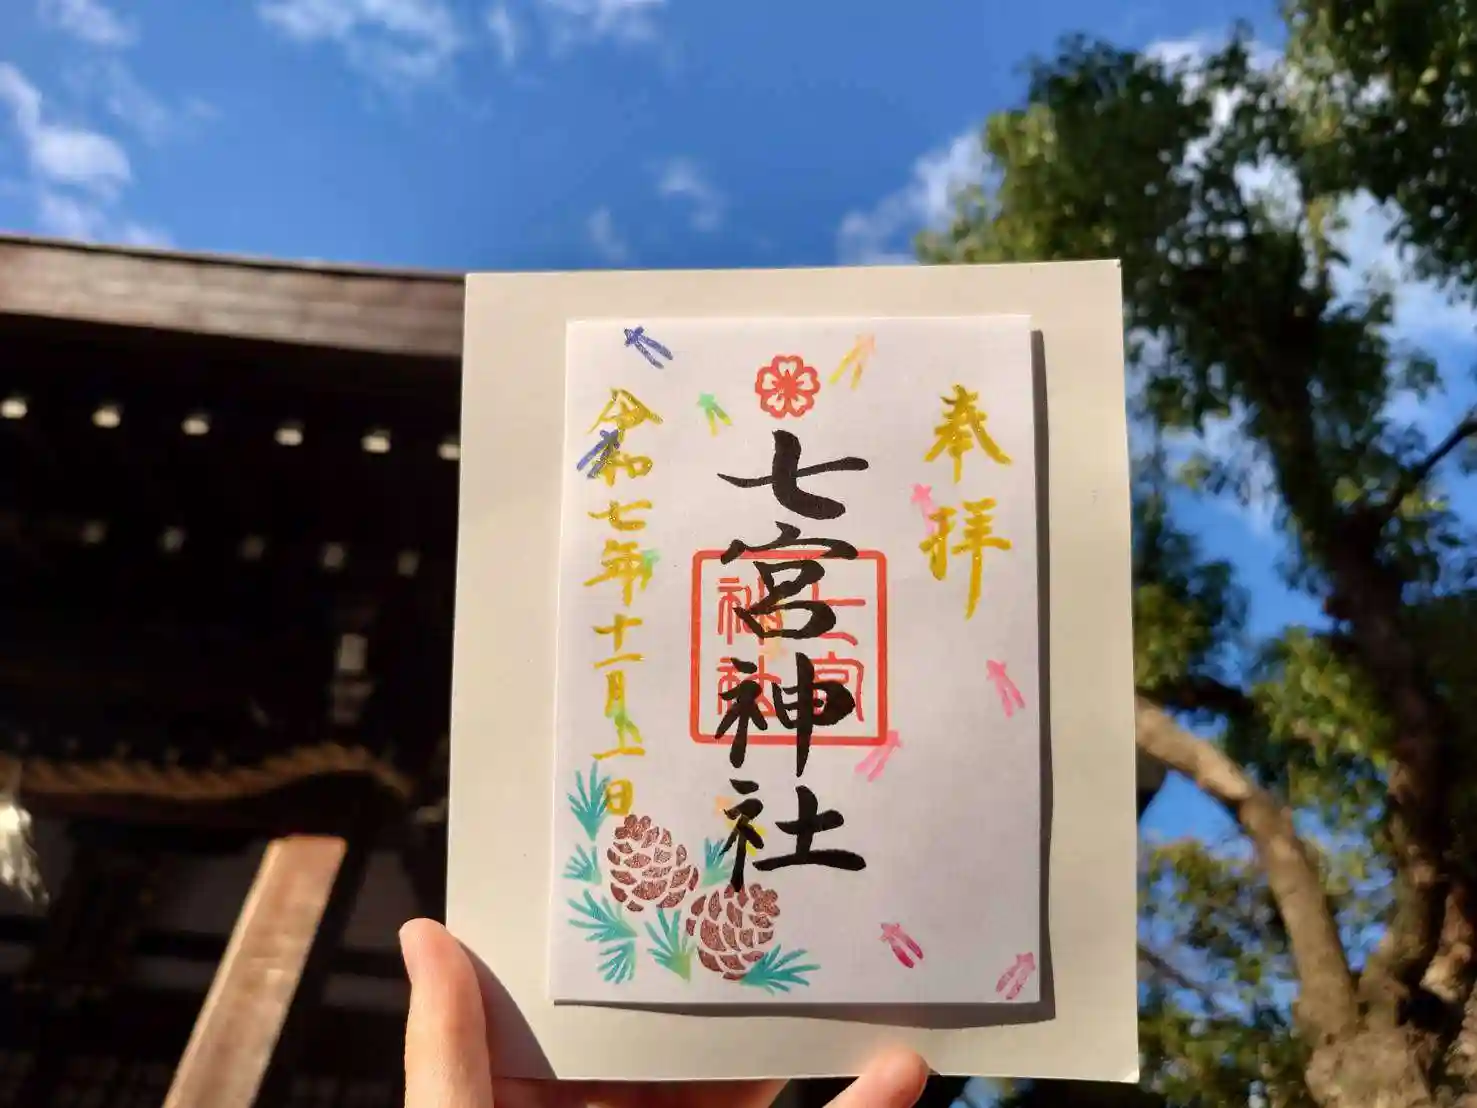 奉拝
七宮神社
七宮神社
令和七年十一月一日